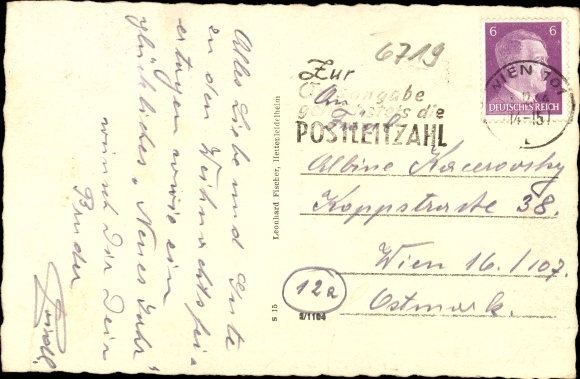 Alles Liebe und Gute
zu den Weihnachtsfei-
ertagen sowie ein
glückliches „Neues Jahr"
wünscht Dir Dein
Bruder
Rudl.
Leonhard Fischer, Hettezleidelheim
S 15
6719
6 6
DEUTSCHES REICH
WIEN 101
14-15
Zur
Ortsangabe
gehört stets die
POSTLEITZAHL
An
Albine Kacerovsky
Koppstrasse 38.
Wien 16./107.
12a
Ostmark.
S/1104